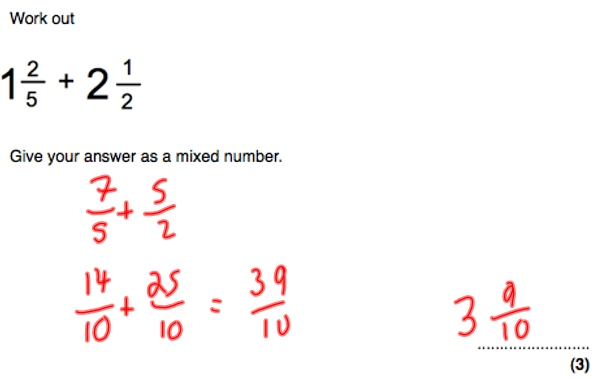 Work out
1 2/5 + 2 1/2
Give your answer as a mixed number.
7/5 + 5/2
14/10 + 25/10 = 39/10
3 9/10
(3)